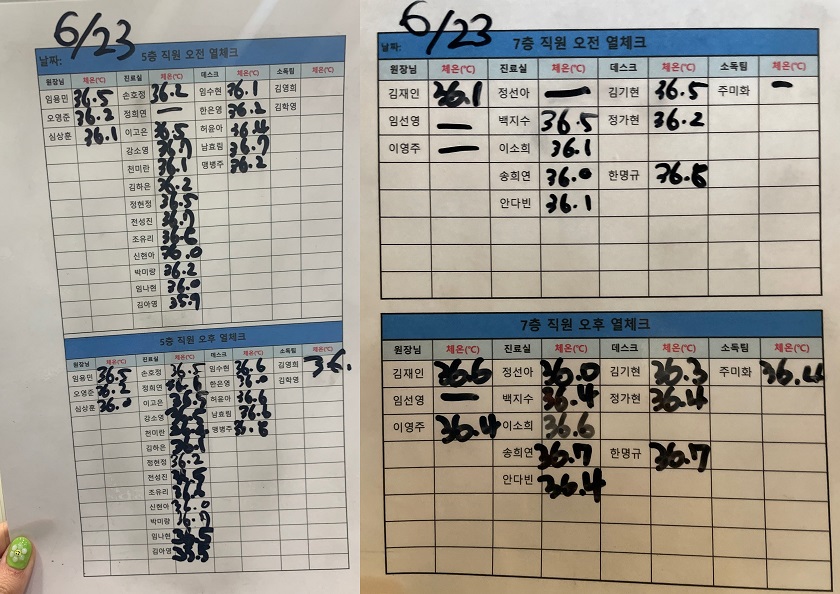 6/23
날짜: 5층 직원 오전 열체크
원장님 체온(℃) 진료실 체온(℃) 데스크 체온(℃) 소독팀 체온(℃)
임용민 36.5 손호정 36.2 임수현 36.1 김영희
오영준 36.2 정희연 — 한은영 36.2 김학영
심상훈 36.1 이고은 36.5 허윤아 36.4
강소영 36.7 남효림 36.7
전미란 36.1 맹병주 36.2
김하은 36.2
정현정 36.5
전성진 36.7
조유리 36.6
신현아 36.0
박미랑 36.2
임나현 36.0
김아영 35.9
5층 직원 오후 열체크
원장님 체온(℃) 진료실 체온(℃) 데스크 체온(℃) 소독팀 체온(℃)
임용민 36.5 손호정 36.5 임수현 36.6 김영희 36.
오영준 36.2 정희연 한은영 36.0 김학영
심상훈 36.0 이고은 허윤아 36.6
강소영 남효림 36.6
전미란 맹병주
김하은 36.1
정현정 36.2
전성진
조유리
신현아 36.0
박미랑 36.7
임나현
김아영
6/23
날짜: 7층 직원 오전 열체크
원장님 체온(℃) 진료실 체온(℃) 데스크 체온(℃) 소독팀 체온(℃)
김재인 36.1 정선아 — 김기현 36.5 주미화 -
임선영 — 백지수 36.5 정가현 36.2
이영주 — 이소희 36.1
송희연 36.0 한명규
안다빈 36.1
7층 직원 오후 열체크
원장님 체온(℃) 진료실 체온(℃) 데스크 체온(℃) 소독팀 체온(℃)
김재인 36.6 정선아 36.0 김기현 36.3 주미화 36.4
임선영 — 백지수 36.4 정가현 36.4
이영주 36.4 이소희 36.6
송희연 36.7 한명규 36.7
안다빈 36.4